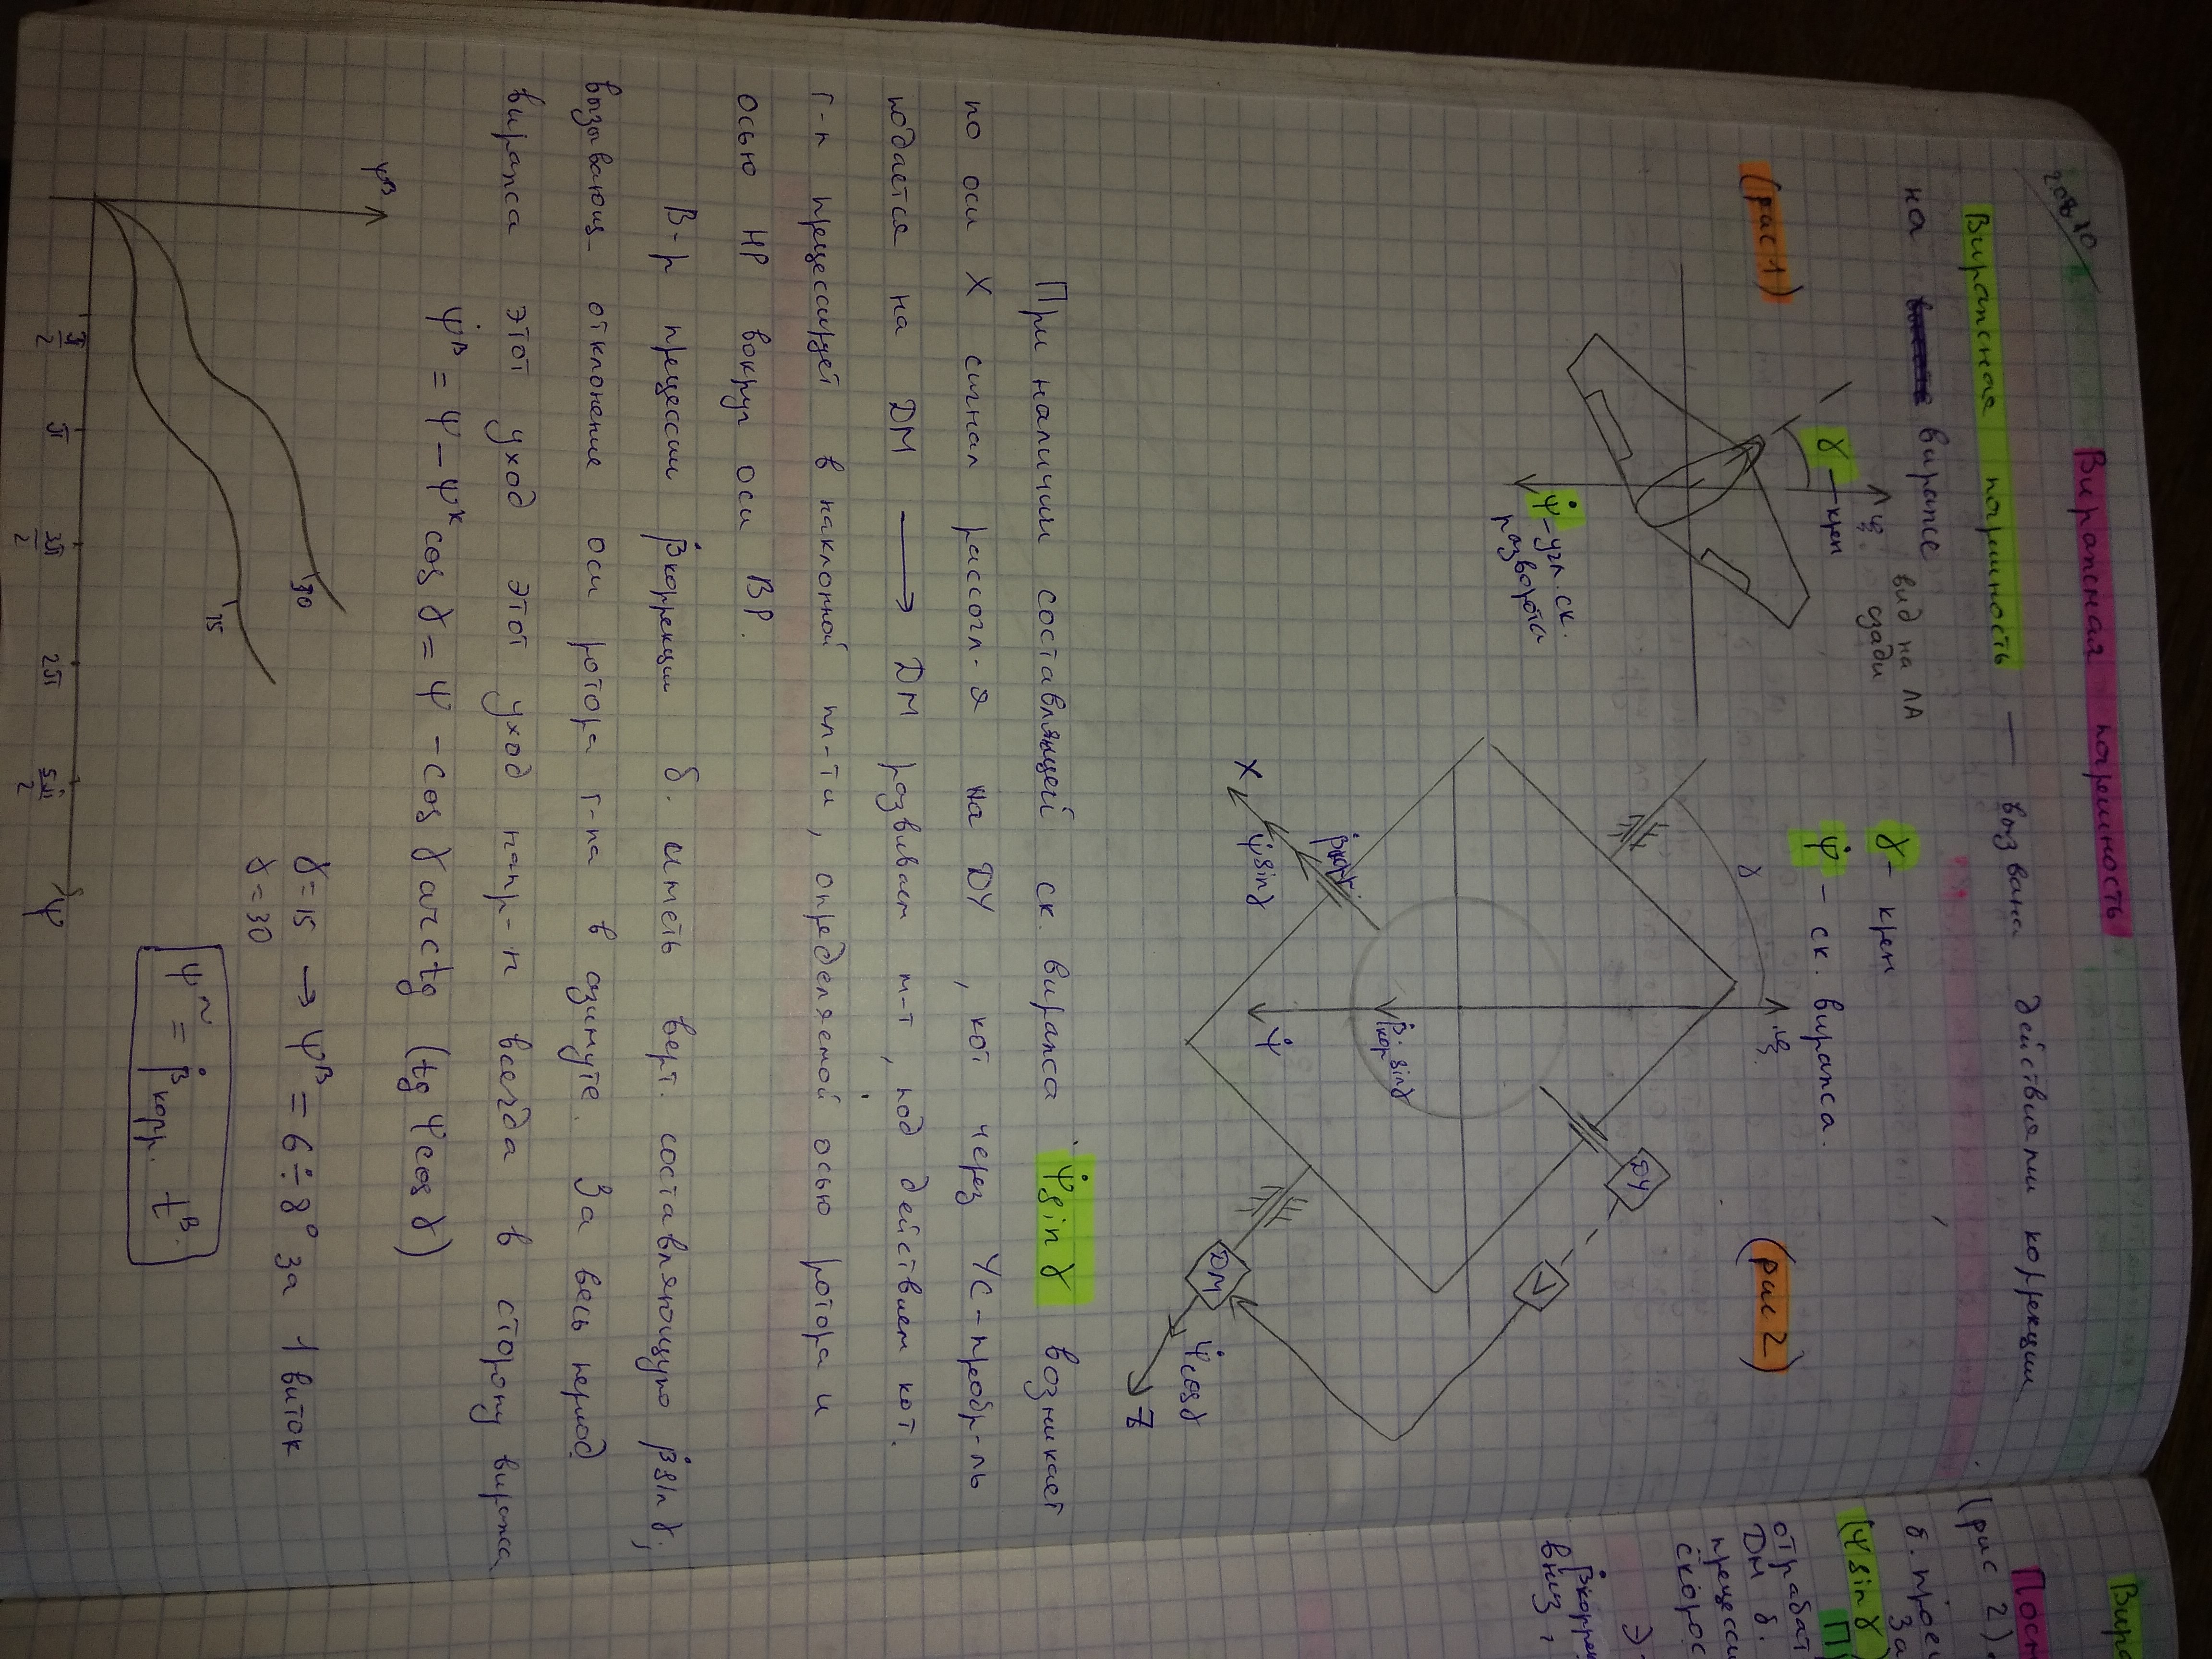 Виражная погрешность
Виражная погрешность — вызвана действиями коррекции
на вираже
вид на ЛА
сзади
γ - крен
ψ̇ - ск. виража.
(рис 1)
γ - крен
ψ̇ - угл. ск.
разворота
(рис 2)
γ
ДУ
У
β̇корр.
ψ̇ sinγ
X
β̇кор sinγ
ψ̇
ДМ
ψ̇ cosγ
Z
При наличии составляющей ск. виража ψ̇ sin γ возникает
по оси X сигнал рассогл-я на ДУ, кот через УС-преобр-ль
подается на ДМ → ДМ развивает м-т, под действием кот.
г-п прецессирует в наклонной пл-ти, определяемой осью ротора и
осью НР вокруг оси ВР.
В-р прецессии β̇коррекции б. иметь верт. составляющую β̇ sin γ,
вызывающ. отклонение оси ротора г-па в азимуте. За весь период
виража этот уход этот уход напр-н всегда в сторону виража
ψᴮ = ψ - ψᴷ cos γ = ψ - cos γ arctg (tg ψ cos γ)
γ = 15 → ψᴮ = 6 ÷ 8° за 1 виток
γ = 30
ψ~ = β̇корр. tᴮ.
ψᴮ
30
15
π/2
π
3π/2
2π
5π/2
ψ
Вира
(рис 2)
б. прое
(ψ̇ sin γ)
За
отрабат
ДМ б.
прецесси
скорос
⇒
β̇корре
вниз,